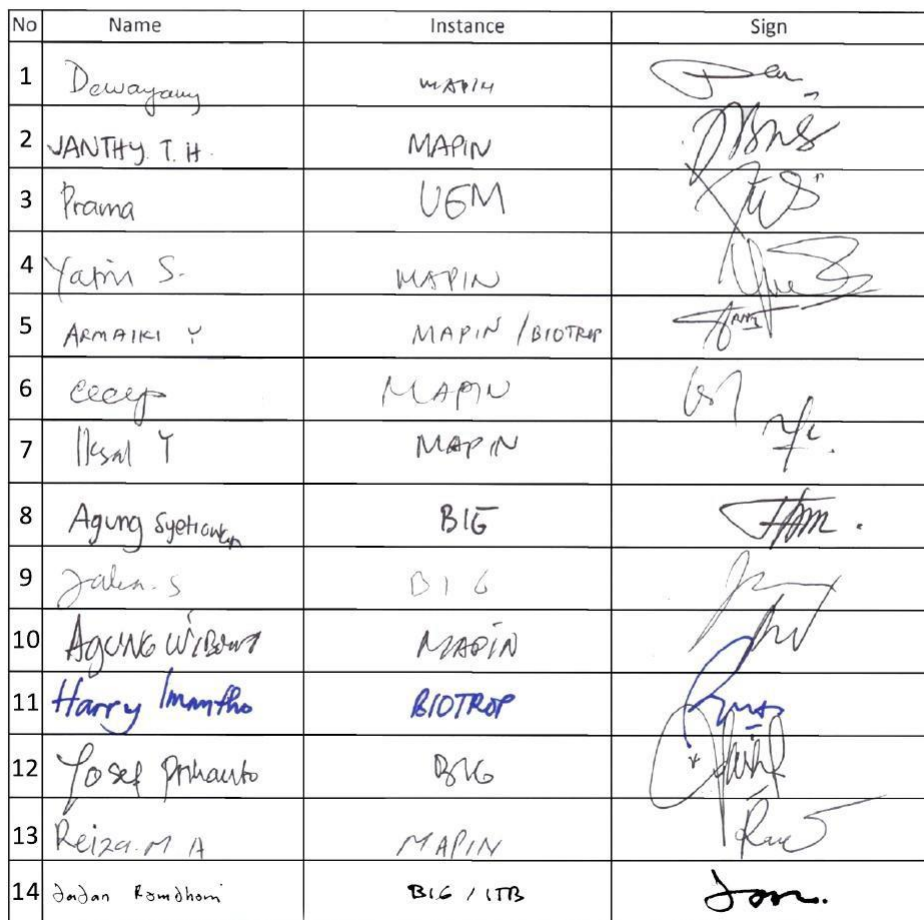 No Name Instance Sign
1 Dewayany MAPIN
2 JANTHY. T. H. MAPIN
3 Prama UGM
4 Yatin S. MAPIN
5 ARMAIKI Y MAPIN / BIOTROP
6 Cecep MAPIN
7 Iksal Y MAPIN
8 Agung Syetiawan BIG
9 Jalu. S BIG
10 AGUNG WIBOWO MAPIN
11 Harry Imantho BIOTROP
12 Yosef Prihanto BIG
13 Reiza. M A MAPIN
14 Dadan Ramdhani BIG / ITB